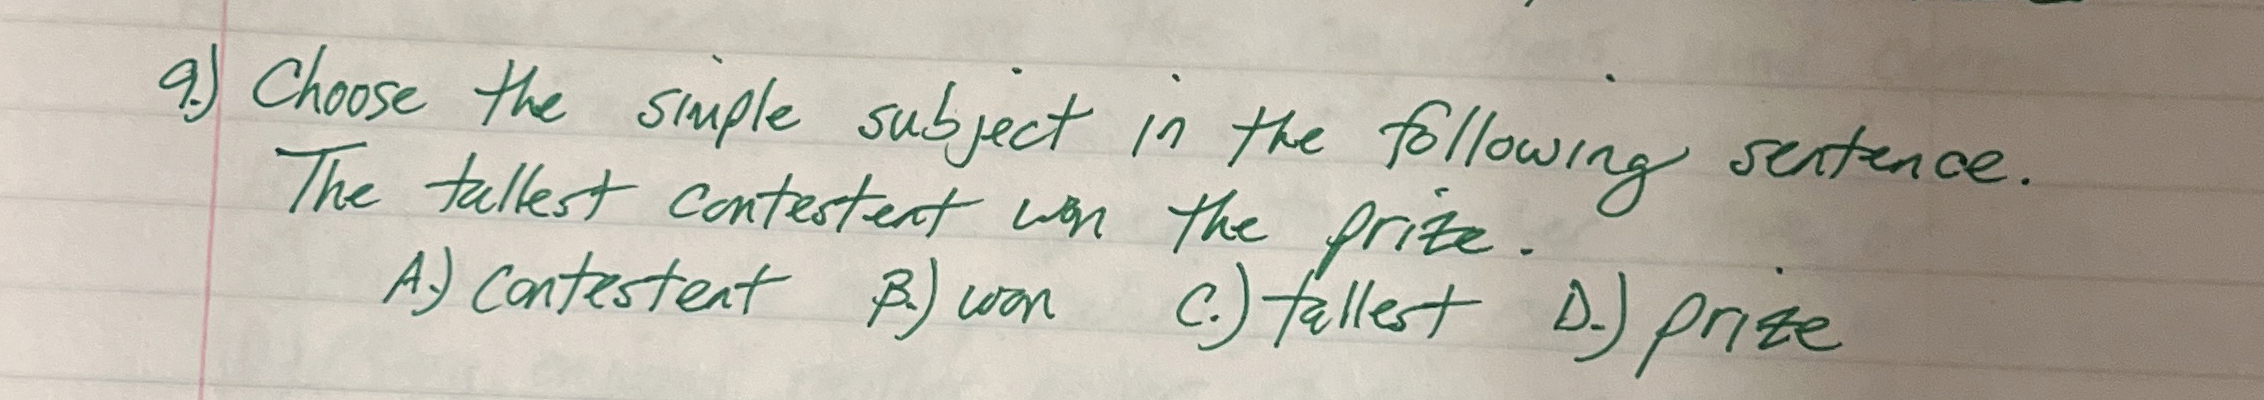 9.) Choose the simple subject in the following sentence.
The tallest contestent won the prize.
A.) contestent B.) won C.) tallest D.) prize